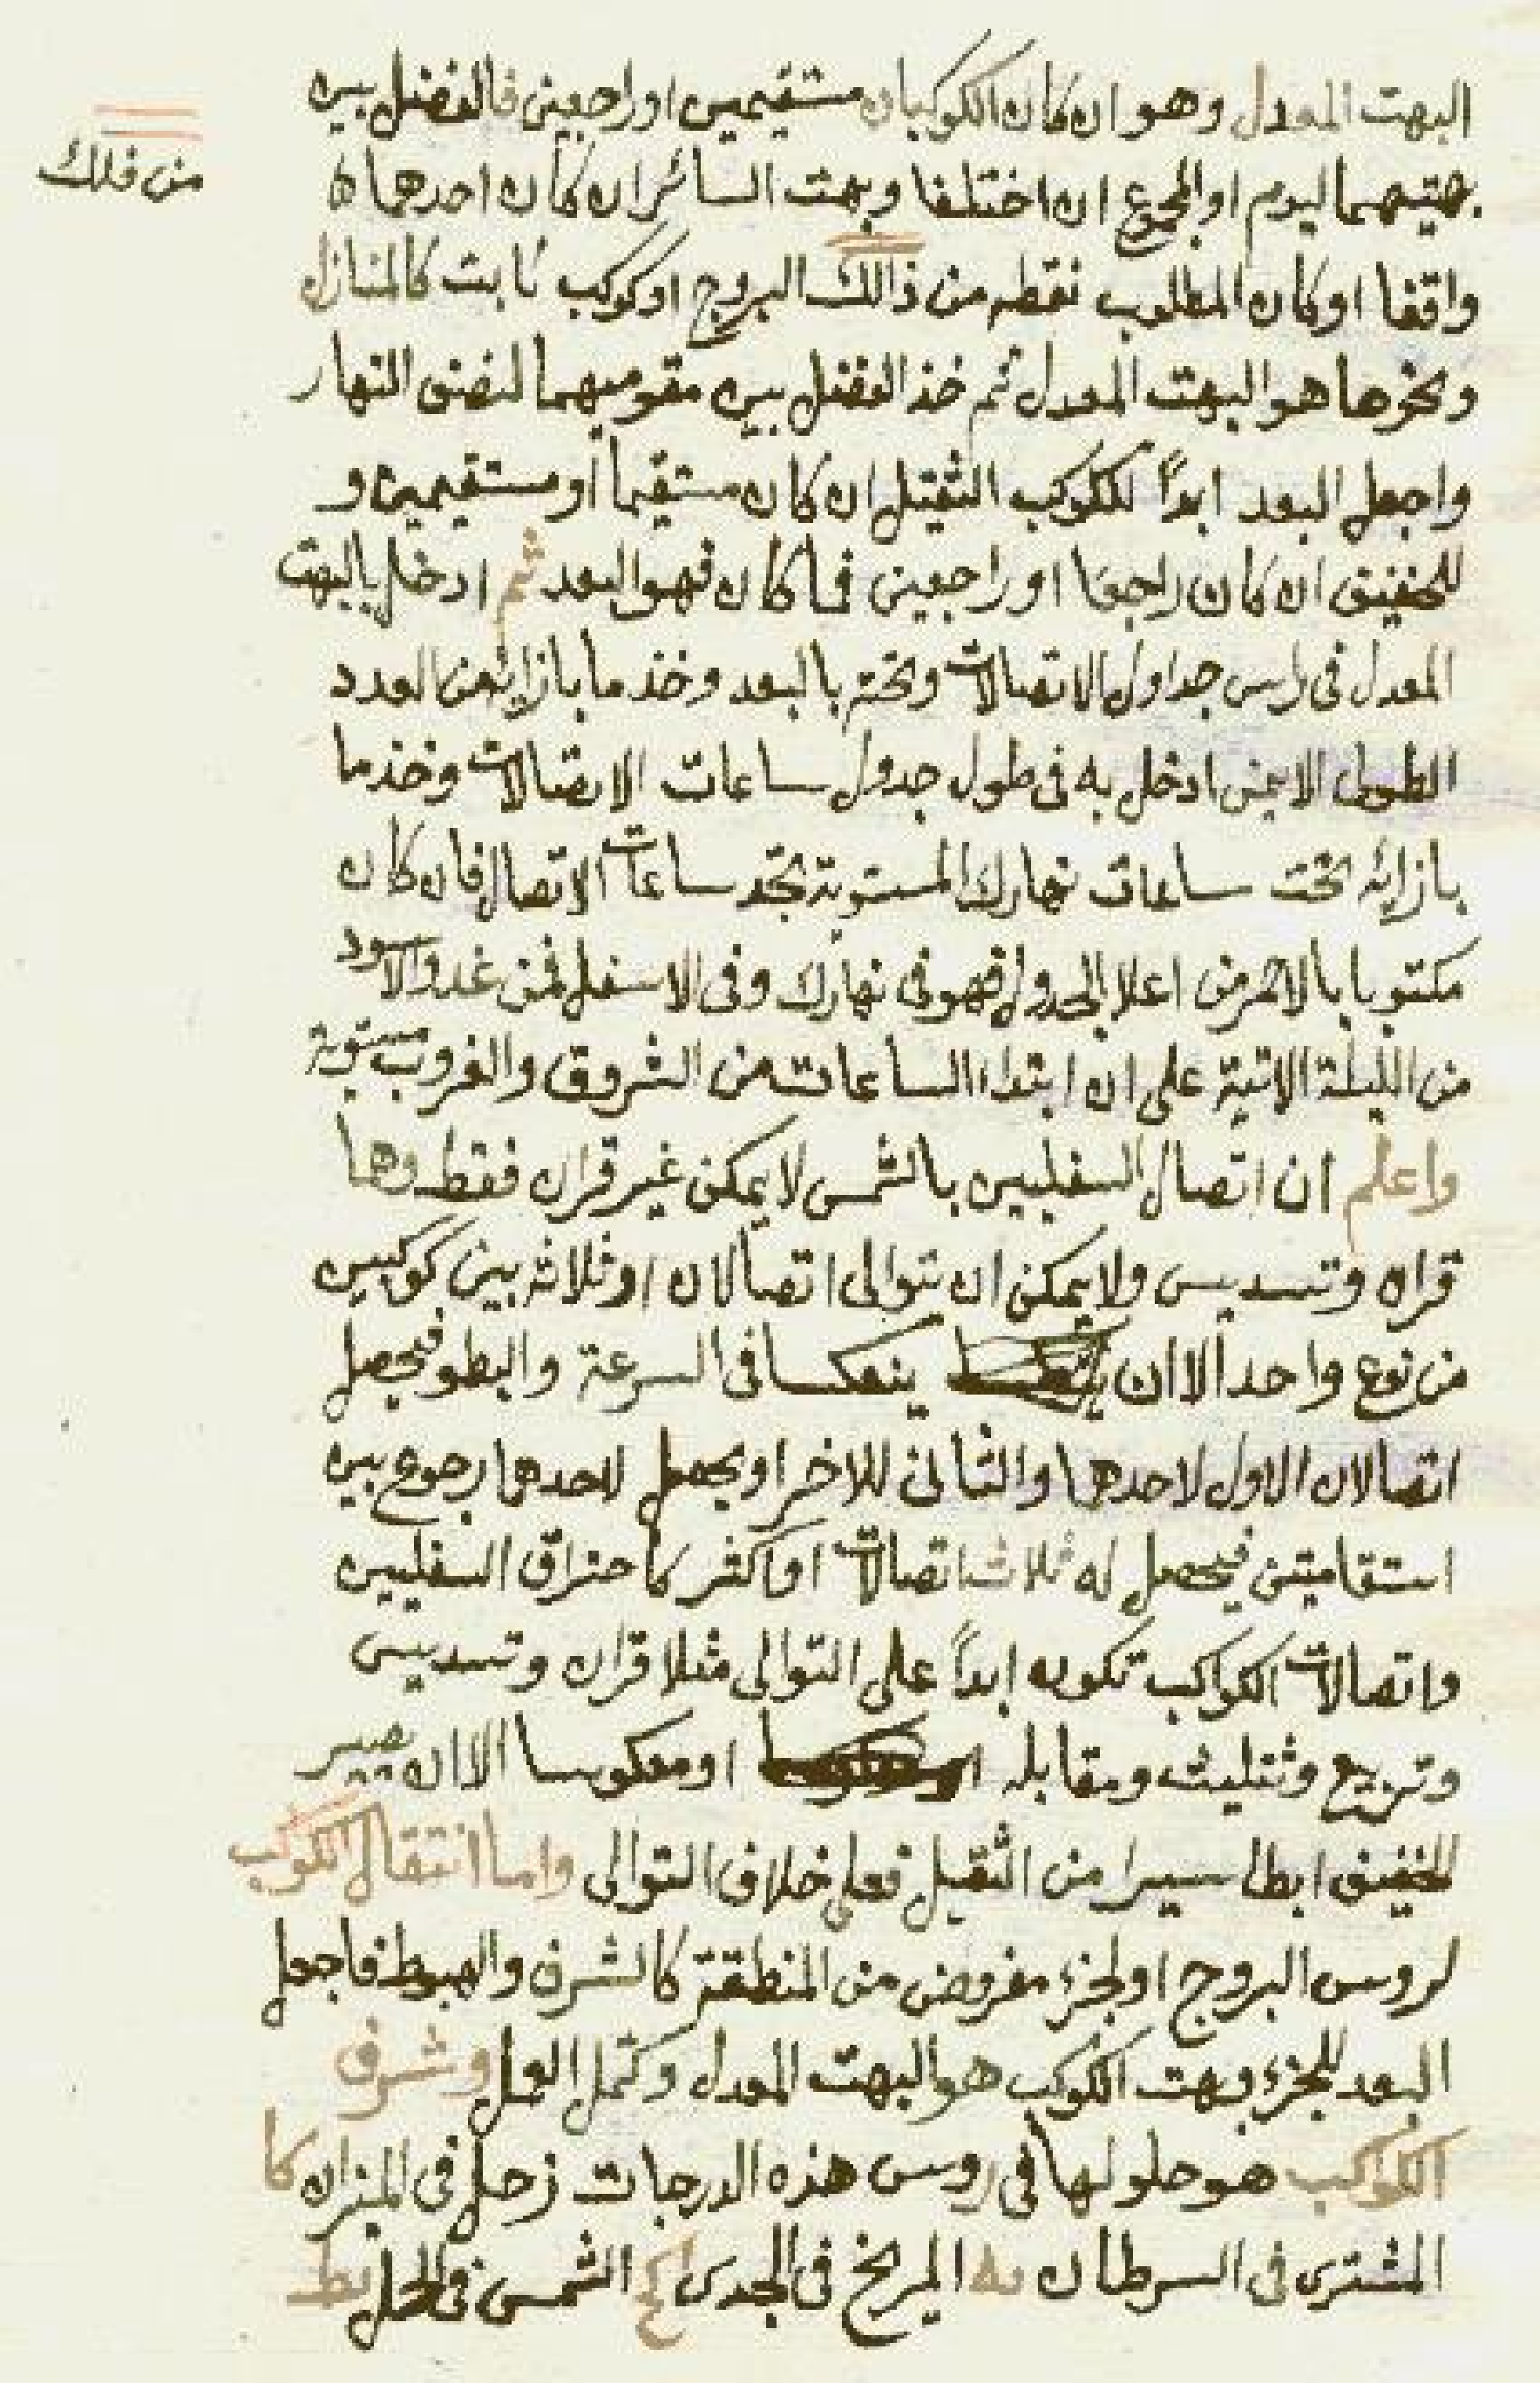 البهت المعدل وهو ان كان الكوكبان مستقيمين او راجعين فالفضل بين
بهتيهما اليوم او المجموع ان اختلفا وبهت السائر ان كان احدهما
من فلك
واقفا او كان المطلوب نقطه من ذالك البروج او كوكب ثابت كالمنازل
ونحوها هو البهت المعدل ثم خذ الفضل بين مقوميهما لنصف النهار
واجعل البعد ابداً للكوكب الثقيل ان كان مستقيماً او مستقيمين و
للخفيف ان كان راجعا او راجعين فما كان فهو البعد ثم ادخل بالبهت
المعدل فى راس جداول الاتصالات وتحته بالبعد وخذ ما بازائه من العدد
الطولى الايمن ادخل به فى طول جدول ساعات الاتصالات وخذ ما
بازائه تحت ساعات نهارك المستوية تجد ساعات الاتصال فان كان
مكتوبا بالاحمر من اعلا الجدول فهو فى نهارك وفى الاسفل فمن غد والاسود
من الليلة الاتية على ان ابتداء الساعات من الشروق والغروب مستوية
واعلم ان اتصال السفليين بالشمس لا يمكن غير قران فقط وهما
قران وتسديس ولا يمكن ان يتوالى اتصالان او ثلاثه بين كوكبين
من نوع واحد الا ان ينعكسا فى السرعة والبطو فيحصل
اتصالان الاول لاحدهما والثانى للاخر او يحصل لاحدهما رجوع بين
استقامتين فيحصل له ثلاث اتصالات او اكثر كاحتراق السفليين
واتصالات الكواكب تكون ابداً على التوالى مثلا قران وتسديس
وتربيع وتثليث ومقابله او معكوسا الا ان يصير
الخفيف ابطا سيرا من الثقيل فعلى خلاف التوالى واما انتقال الكوكب
لروس البروج او لجزء مفروض من المنطقة كالشرف والهبوط فاجعل
البعد للجزء وبهت الكوكب هو البهت المعدل وكمل العمل وشرف
الكواكب هو حلولها فى روس هذه الدرجات زحل فى الميزان كا
المشترى فى السرطان يه المريخ فى الجدى كح الشمس فى الحمل يط